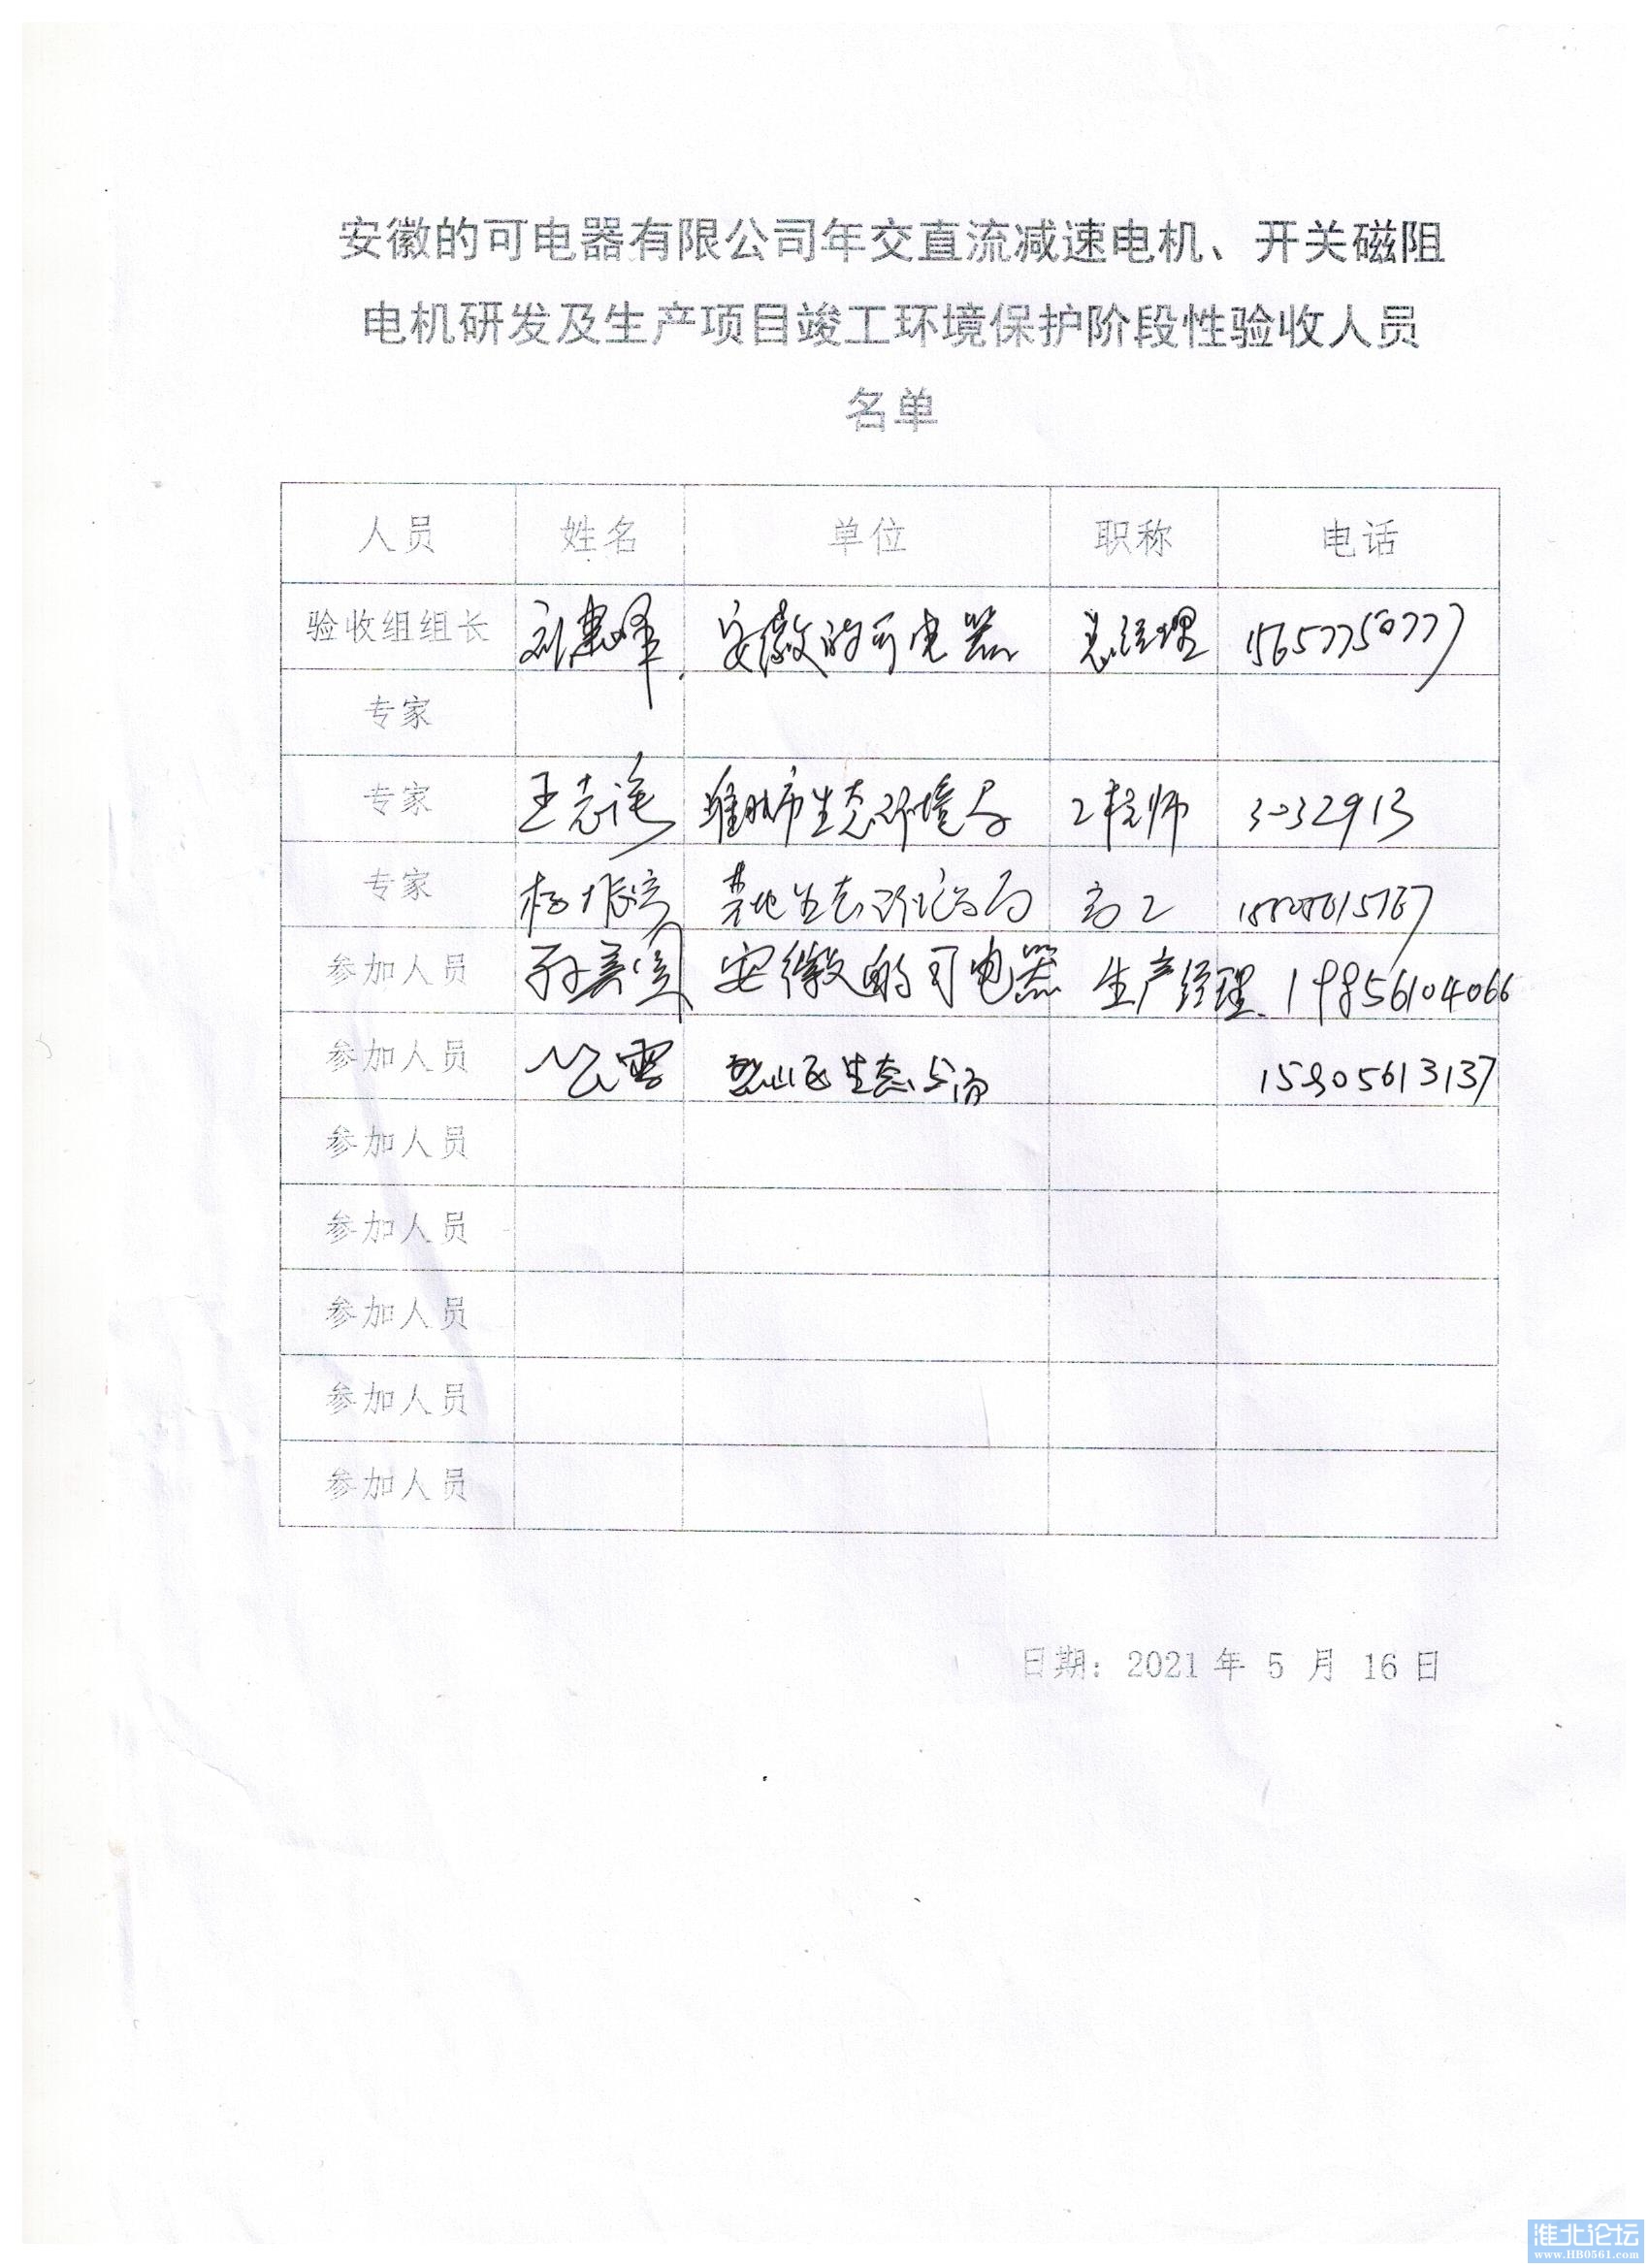 安徽的可电器有限公司年交直流减速电机、开关磁阻
电机研发及生产项目竣工环境保护阶段性验收人员
名单
人员 姓名 单位 职称 电话
验收组组长 刘惠峰 安徽的可电器 总经理 15657750777
专家
专家 王志 淮北市生态环境局 工程师 3032913
专家 杨 生态环境局 高工
参加人员 孙 安徽的可电器 生产经理 19856104066
参加人员 雪 烈山区生态分局 15905613137
参加人员
参加人员
参加人员
参加人员
参加人员
日期：2021 年 5 月 16 日
淮北论坛
www.HB0561.com